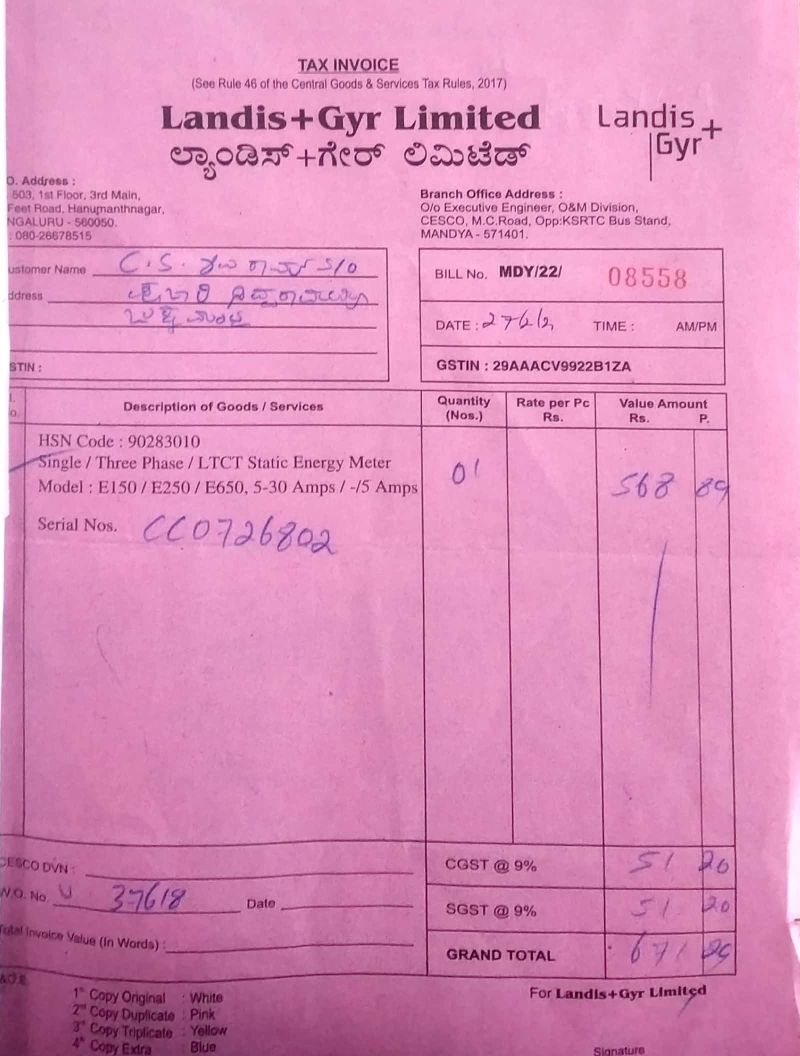 TAX INVOICE
(See Rule 46 of the Central Goods & Services Tax Rules, 2017)
Landis+Gyr Limited
ಲ್ಯಾಂಡಿಸ್+ಗೇರ್ ಲಿಮಿಟೆಡ್
Landis
Gyr+
O. Address :
503, 1st Floor, 3rd Main,
Feet Road, Hanumanthnagar,
NGALURU - 560050.
: 080-26678515
Branch Office Address :
O/o Executive Engineer, O&M Division,
CESCO, M.C.Road, Opp:KSRTC Bus Stand,
MANDYA - 571401.
ustomer Name C.S. S/O
ddress
STIN :
BILL No. MDY/22/ 08558
DATE : TIME : AM/PM
GSTIN : 29AAACV9922B1ZA
Description of Goods / Services
Quantity (Nos.)
Rate per Pc Rs.
Value Amount Rs. P.
HSN Code : 90283010
Single / Three Phase / LTCT Static Energy Meter
Model : E150 / E250 / E650, 5-30 Amps / -/5 Amps
01
568 89
Serial Nos. CC0726802
CESCO DVN :
W.O. No. 37618 Date
Total Invoice Value (In Words) :
CGST @ 9% 51 20
SGST @ 9% 51 20
GRAND TOTAL 671 29
1st Copy Original : White
2nd Copy Duplicate : Pink
3rd Copy Triplicate : Yellow
4th Copy Extra : Blue
For Landis+Gyr Limited
Signature